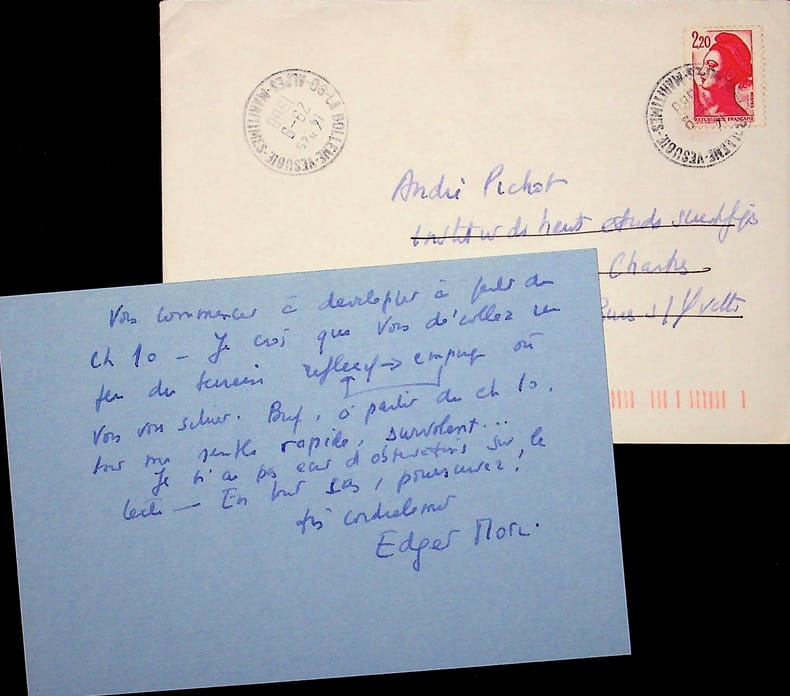 2,20
REPUBLIQUE FRANÇAISE
06-LA BOLLENE-VESUBIE ALPES-MARITIMES
14 H 45
29-8
1988
André Pichot
Institut des hauts études scientifiqs
Chartres
Bures s/Yvette
Vous commencez à developper à partir du
ch 10 – Je crois que vous décollez un
peu du terrain → empiriq où
vous vous situez. Bref, à partir du ch 10.
tout me semble rapide, survolant...
Je n'ai pas eu d'observations sur le
texte — En tout cas, poursuivez!
très cordialement
Edgar Morin.